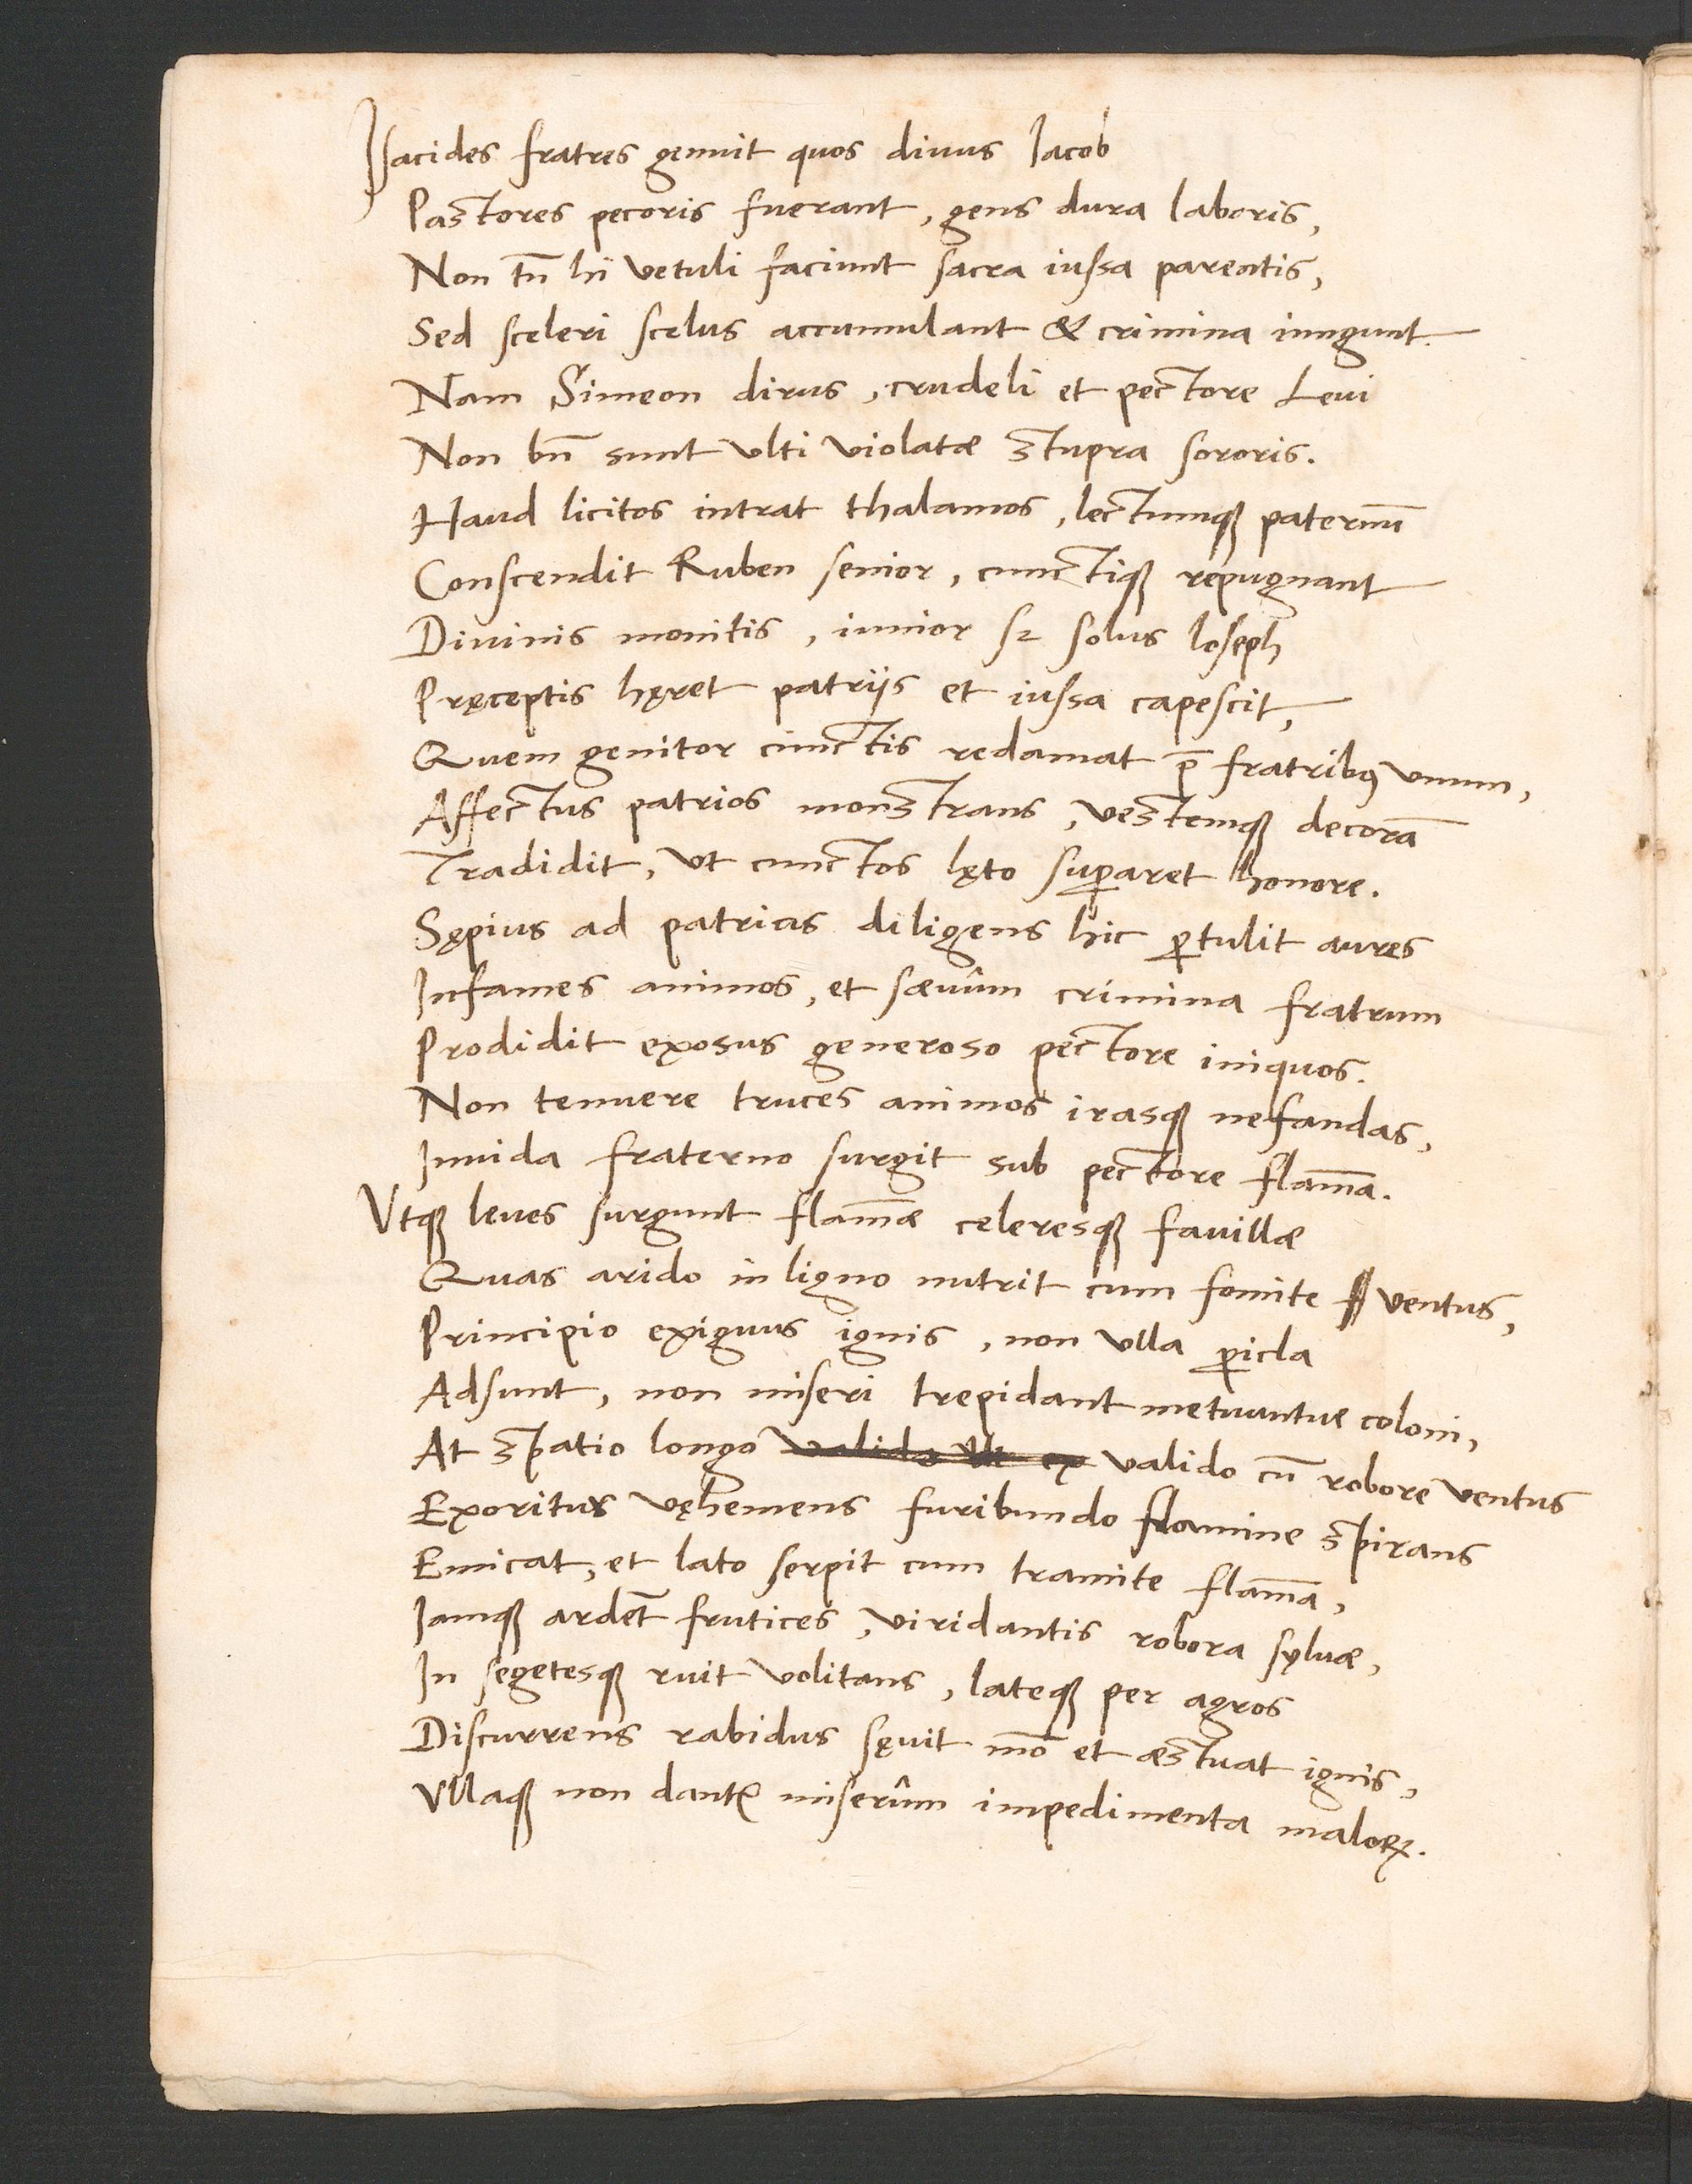 Isacides fratres genuit quos diuus Iacob
Pastores pecoris fuerant, gens dura laboris,
Non tn̄ hi vetuli faciunt sacra iussa parentis,
Sed sceleri scelus accumulant & crimina iungunt.
Nam Simeon dirus, crudeli et pectore Leui
Non bn̄ sunt vlti violatæ stupra sororis.
Haud licitos intrat thalamos, lectumqꝫ paternū
Conscendit Ruben senior, cunctiqꝫ repugnant
Diuinis monitis, iunior sꝫ solus Ioseph
Pręceptis hęret patrijs et iussa capescit,
Quem genitor cunctis redamat p̄ fratribꝰ vnum,
Affectus patrios monstrans, vestemqꝫ decorā
Tradidit, vt cunctos lęto suꝑaret honore.
Sępius ad patrias diligens hic ꝑtulit aures
Infames animos, et sæuûm crimina fratrum
Prodidit exosus generoso pectore iniquos.
Non tenuere truces animos irasqꝫ nefandas,
Inuida fraterno surgit sub pectore flam̄a.
Vtqꝫ leues surgunt flam̄æ celeresqꝫ fauillæ
Quas arido in ligno nutrit cum fomite ventus,
Principio exiguus ignis, non vlla ꝑicla
Adsunt, non miseri trepidant metuuntue coloni,
At spatio longo valido vt ex valido cū robore ventus
Exoritur vęhemens furibundo flamine spirans
Emicat, et lato serpit cum tramite flam̄a,
Iamqꝫ ardēt frutices, viridantis robora syluæ,
In segetesqꝫ ruit volitans, lateqꝫ per agros
Discurrens rabidus sęuit mō et æstuat ignis,
Vllaqꝫ non dantꝛ miserûm impedimenta maloꝝ.